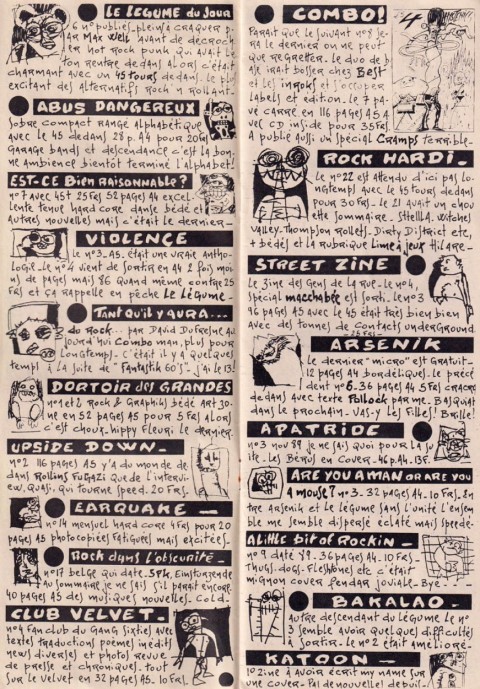 LE LEGUME du Jour
6 nos publiés, plein à craquer p
ar Max Well avant de decroch
er hot rock punk qui avait le
ton rentre dedans Alors c'était
charmant avec un 45 tours dedans. le plus
excitant des alternatifs Rock'n Rollant.
ABUS DANGEREUX
Sobre compact rangé alphabétique
avec le 45 dedans 28 p. A4 pour 20
Garage bands et descendance c'est la bon
ne ambience bientôt terminé l'alphabet!
EST-CE Bien RAISONNABLE?
n°7 avec 45t 25Frs 52 pages A4 excel
lente tenue hardcore danse bédé et
Autres nouvelles mais c'était le dernier_
VIOLENCE
Le n°3. A5. était une vraie antho-
logie. Le n°4 vient de sortir en A4 2 fois moi
ns de pages mais 86 quand même contre 25
Frs et ça rappelle en pêche Le Légume_
Tant qu'il y aura...
du Rock... par David Dufresne au
jourd'hui Combo man, plus pour
longtemps_ c'était il y a quelques
temps à la suite de "Fantastik 60's" j'ai le 13!
DORTOIR des GRANDES
n°1 et 2 Rock & Graphiks bédé Art Zo-
ne en 52 pages A5 pour 5 Frs alors
c'est choux. hippy Fleuri le dernier_
UPSIDE DOWN_
n°2 116 pages A5 y'a du monde de-
dans Rollins Fugazi que de l'intervi-
ew, quasi, qui tourne speed. 20 Frs.
EARQUAKE_
n°14 mensuel hardcore 4Frs pour 20
pages A5 photocopiées Fatigues mais excitées.
Rock dans l'obscurité_
n°17 belge qui date. SPK, Einsturzende
Au sommaire je ne sais s'il parait encore.
40 pages A5 des musiques nouvelles. Cold.
CLUB VELVET_
n°4 Fan club du Gang Sixties avec
textes traductions poèmes inédit
news diverses et photos revue
de presse et chroniques. tout
sur le Velvet en 32 pages A5. 10 Frs.
COMBO!
Parait que le suivant n°8 se-
ra le dernier on ne peut
que regretter. Le duo de b
ase irait bosser chez Best
et les inrocks et s'occuper
labels et édition. Le 7 pa-
vé carré en 116 pages A5 a
vec CD inside pour 35 Frs
A publié aussi un spécial Cramps terrible_
4
ROCK HARDI_
Le n°22 est attendu d'ici pas lo
ngtemps avec le 45 tours dedans
pour 30 Frs_ le 21 avait un chou
ette sommaire. Sttellla. Witches
Valley. Thompson Rollets. Dirty District etc,
+ bédés et la rubrique Lime à jeux Hilare_
STREET ZINE_
Le Zine des Gens de la Rue. le n°4,
spécial macchabée est sorti. Le n°3
96 pages A5 avec le 45 était très bien bien
avec des tonnes de Contacts underground
25 Frs
ARSENIK
Le dernier "micro" est gratuit_
12 pages A4 bordéliques. le précé
dent n°6_ 36 pages A4 5 Frs cracra
de dans avec texte Pollock par me. Basquiat
dans le prochain_ vas-y les Filles! Brille!
APATRIDE_
n°3 nov 89 je ne sais quoi pour la su
ite_ Les Bérus en Cover_ 46 p. A4. 13F.
ARE YOU A MAN OR ARE YOU
A mouse? n°3_ 32 pages A4_ 10 Frs. En
tre arsenik et Le légume sans l'unité l'ensem
ble me semble dispersé éclaté mais speedé_
A little bit of Rockin_
n°9 daté 89_ 36 pages A4_ 10 Frs_
Thugs. dogs. Fleshtones etc c'était
mignon cover fendar joviale_ Bye_
BAKALAO_
Autre descendant du Légume Le n°
3 semble avoir quelques difficultés
à sortir_ Le n°2 était amélioré_
KATOON_
10 Zine à avoir écrit my name sur
une cover_ Pas de nouvelle depuis_